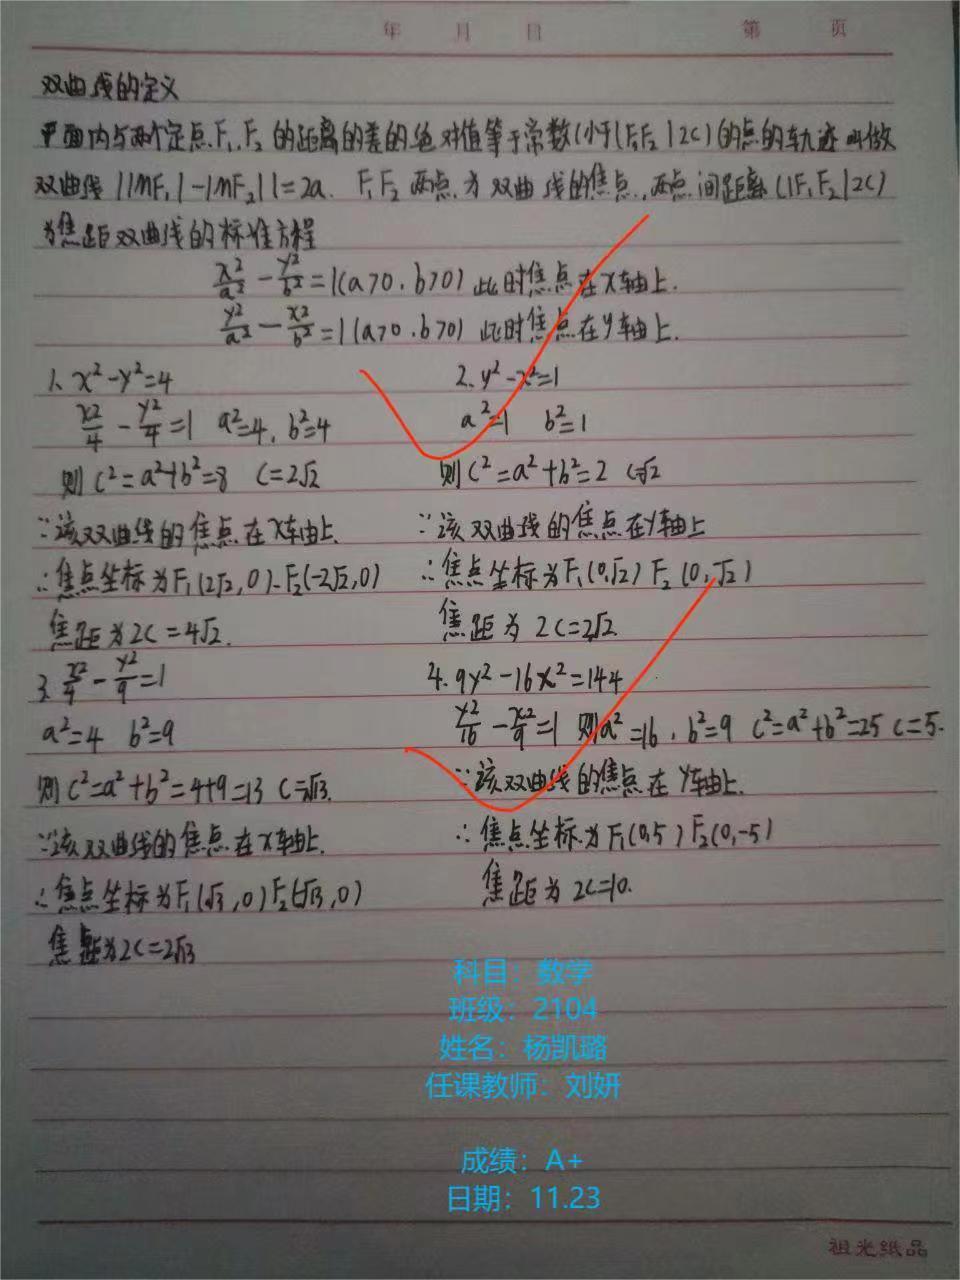 年 月 日 第 页
双曲线的定义
平面内与两个定点F₁,F₂的距离的差的绝对值等于常数(小于|F₁F₂|2C)的点的轨迹叫做
双曲线||MF₁|-|MF₂||=2a. F₁F₂两点为双曲线的焦点,两点间距离(|F₁F₂|2C)
为焦距双曲线的标准方程
x²/a² - y²/b² =1(a>0.b>0)此时焦点在x轴上.
y²/a² - x²/b² =1(a>0.b>0)此时焦点在y轴上.
1、x²-y²=4
x²/4 - y²/4 =1 a²=4, b²=4
则C²=a²+b²=8 C=2√2
∵该双曲线的焦点在x轴上.
∴焦点坐标为F₁(2√2,0).F₂(-2√2,0)
焦距为2C=4√2.
2、y²-x²=1
a²=1 b²=1
则C²=a²+b²=2 C=√2
∵该双曲线的焦点在y轴上
∴焦点坐标为F₁(0,√2) F₂(0,√2)
焦距为 2C=2√2
3、x²/4 - y²/9 =1
a²=4 b²=9
则C²=a²+b²=4+9=13 C=√13.
∵该双曲线的焦点在x轴上.
∴焦点坐标为F₁(√13,0)F₂(-√13,0)
焦距为2C=2√13
4、9y²-16x²=144
y²/16 - x²/9 =1 则a²=16, b²=9 C²=a²+b²=25 C=5.
∵该双曲线的焦点在y轴上.
∴焦点坐标为F₁(0,5)F₂(0,-5)
焦距为 2C=10.
科目：数学
班级：2104
姓名：杨凯璐
任课教师：刘妍
成绩：A+
日期：11.23
祖光纸品